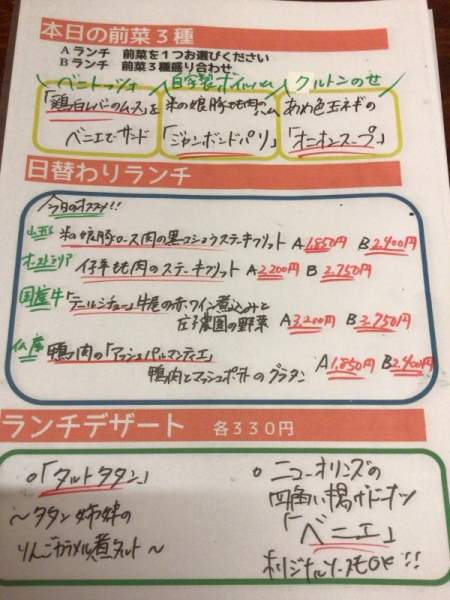 本日の前菜3種
Aランチ 前菜を1つお選びください
Bランチ 前菜3種盛り合わせ
ベニトッツォ 自家製ボイルハム クルトンのせ
「鶏白レバーのムース」を 米の娘豚もも肉のハム あめ色玉ネギの
ベニエでサンド 「ジャンボンドパリ」 「オニオンスープ」
日替わりランチ
今日のオススメ!!
山形 米の娘豚ロース肉の黒コショウステーキフリット A1,850円 B2,400円
オーストラリア 仔羊もも肉のステーキフリット A2,200円 B2,750円
国産牛 「テールシチュー」牛尾の赤ワイン煮込みと
庄子農園の野菜 A3,200円 B3,750円
仏産 鴨肉の「アッシェパルマンティエ」
鴨肉とマッシュポテトのグラタン A1,850円 B2,400円
ランチデザート 各330円
○「タルトタタン」
～タタン姉妹の
りんごカラメル煮タルト～
○ニューオリンズの
四角い揚げドーナツ
「ベニエ」
オリジナルソースもOK!!